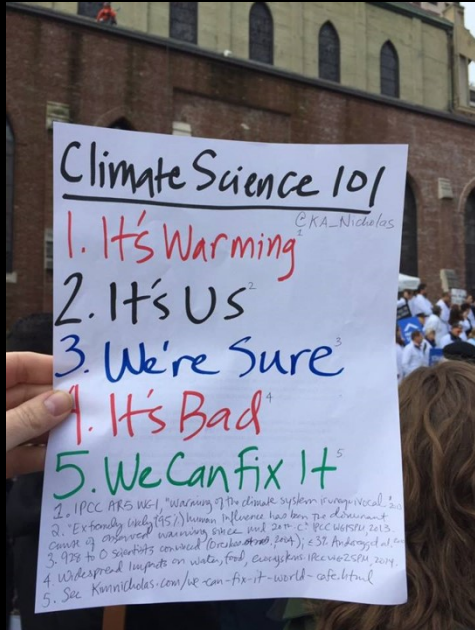 Climate Science 101
@KA_Nicholas
1. It's Warming 1
2. It's Us 2
3. We're Sure 3
4. It's Bad 4
5. We Can Fix It 5
1. IPCC AR5 WG1, "Warming of the climate system is unequivocal."
2. "Extremely likely (95%) human influence has been the dominant
cause of observed warming since mid 20th c." IPCC WG1SPM, 2013.
3. 928 to 0 scientists convinced (Oreskes 2004);
4. Widespread impacts on water, food, ecosystems. IPCC WG2SPM, 2014.
5. See Kimnicholas.com/we-can-fix-it-world-cafe.html